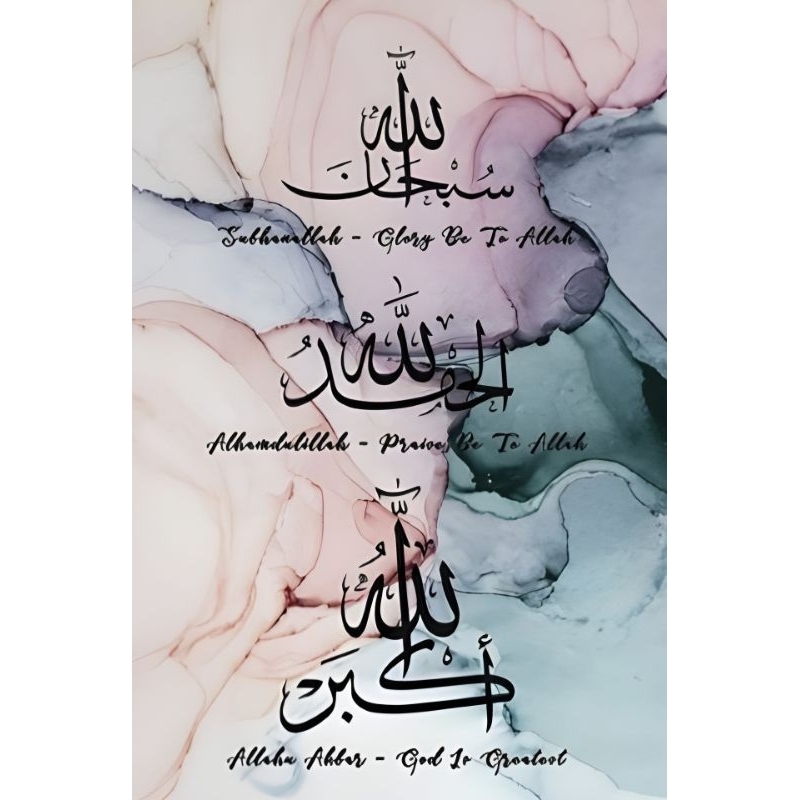 سُبْحَانَ اللّٰه
Subhanallah - Glory Be To Allah
الحَمْدُ لِلّٰه
Alhamdulillah - Praise Be To Allah
اللّٰهُ أَكْبَرَ
Allahu Akbar - God Is Greatest